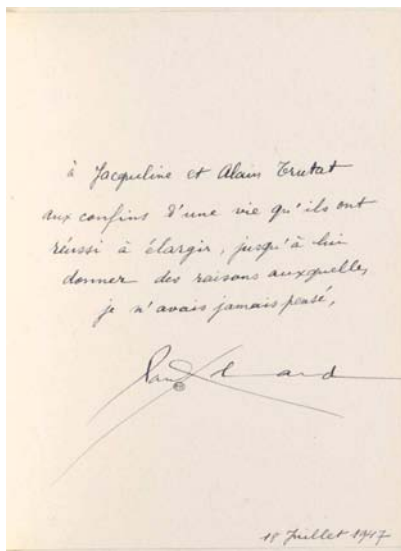 à Jacqueline et Alain Trutat
aux confins d'une vie qu'ils ont
réussi à élargir, jusqu'à lui
donner des raisons auxquelles
je n'avais jamais pensé,
Paul Eluard
18 Juillet 1947